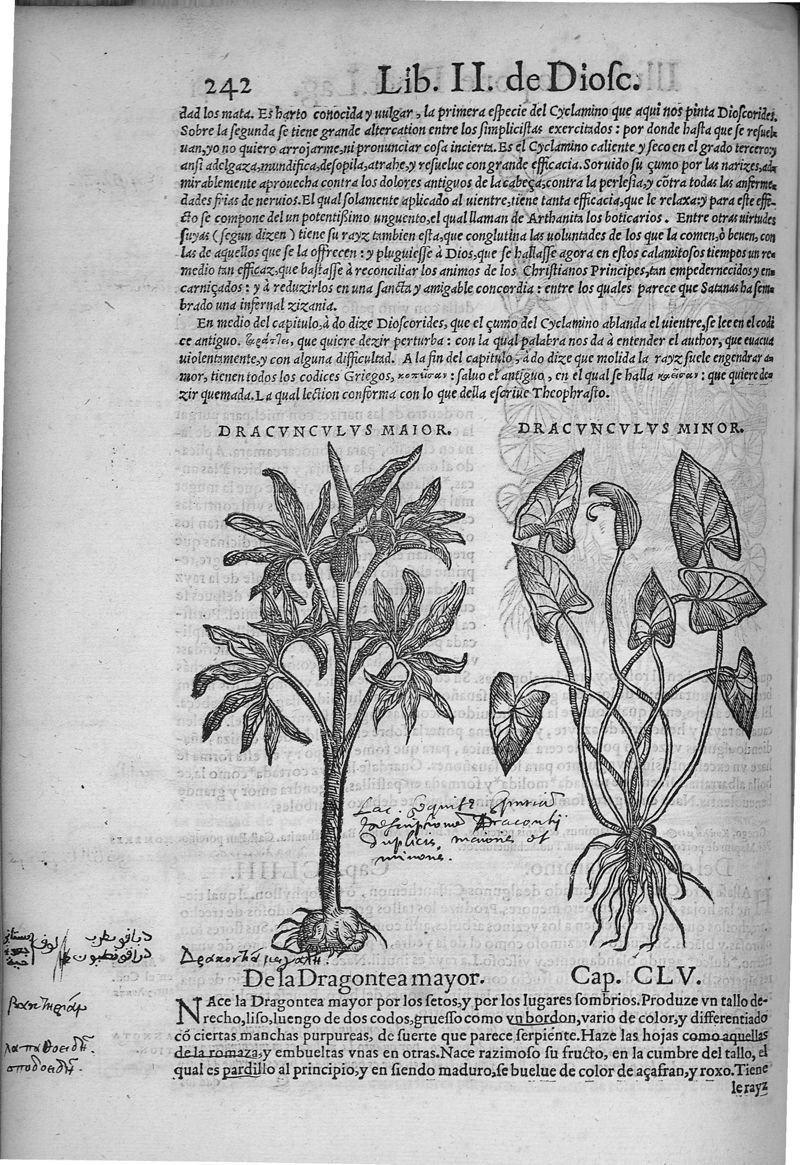 242 Lib. II. de Diosc.
dad los mata. Es harto conocida y uulgar, la primera especie del Cyclamino que aqui nos pinta Dioscorides.
Sobre la segunda se tiene grande altercation entre los simplicistas exercitados: por donde hasta que se resuel
uan, yo no quiero arrojarme, ni pronunciar cosa incierta. Es el Cyclamino caliente y seco en el grado tercero: y
ansi adelgaza, mundifica, desopila, atrahe, y resuelue con grande efficacia. Soruido su çumo por las narizes, ad
mirablemente aprouecha contra los dolores antiguos de la cabeça, contra la perlesia, y cōtra todas las anferme
dades frias de neruios. El qual solamente aplicado al uientre, tiene tanta efficacia, que le relaxa: y para este effe
cto se compone del un potentißimo unguento, el qual llaman de Arthanita los boticarios. Entre otras uirtudes
suyas (segun dizen) tiene su rayz tambien esta, que conglutina las uoluntades de los que la comen, ò beuen, con
las de aquellos que se la offrecen: y pluguiesse à Dios, que se hallasse agora en estos calamitosos tiempos un re
medio tan efficaz, que bastasse à reconciliar los animos de los Christianos Principes, tan empedernecidos y en
carniçados: y à reduzirlos en una sancta y amigable concordia: entre los quales parece que Satanas ha sem
brado una infernal zizania.
En medio del capitulo, à do dize Dioscorides, que el çumo del Cyclamino ablanda el uientre, se lee en el codi
ce antiguo. que quiere dezir perturba: con la qual palabra nos da à entender el author, que euacua
uiolentamente, y con alguna difficultad. A la fin del capitulo, à do dize que molida la rayz suele engendrar a-
mor, tienen todos los codices Griegos, saluo el antiguo, en el qual se halla que quiere de-
zir quemada. La qual lection conforma con lo que della escriue Theophrasto.
DRACVNCVLVS MAIOR. DRACVNCVLVS MINOR.
Dracontij
duplicis, maioris et
minoris.
De la Dragontea mayor. Cap. CLV.
NAce la Dragontea mayor por los setos, y por los lugares sombrios. Produze vn tallo de-
recho, liso, luengo de dos codos, gruesso como vn bordon, vario de color, y differentiado
cō ciertas manchas purpureas, de suerte que parece serpiente. Haze las hojas como aquellas
de la romaza, y embueltas vnas en otras. Nace razimoso su fructo, en la cumbre del tallo, el
qual es pardillo al principio, y en siendo maduro, se buelue de color de açafran, y roxo. Tiene
le rayz